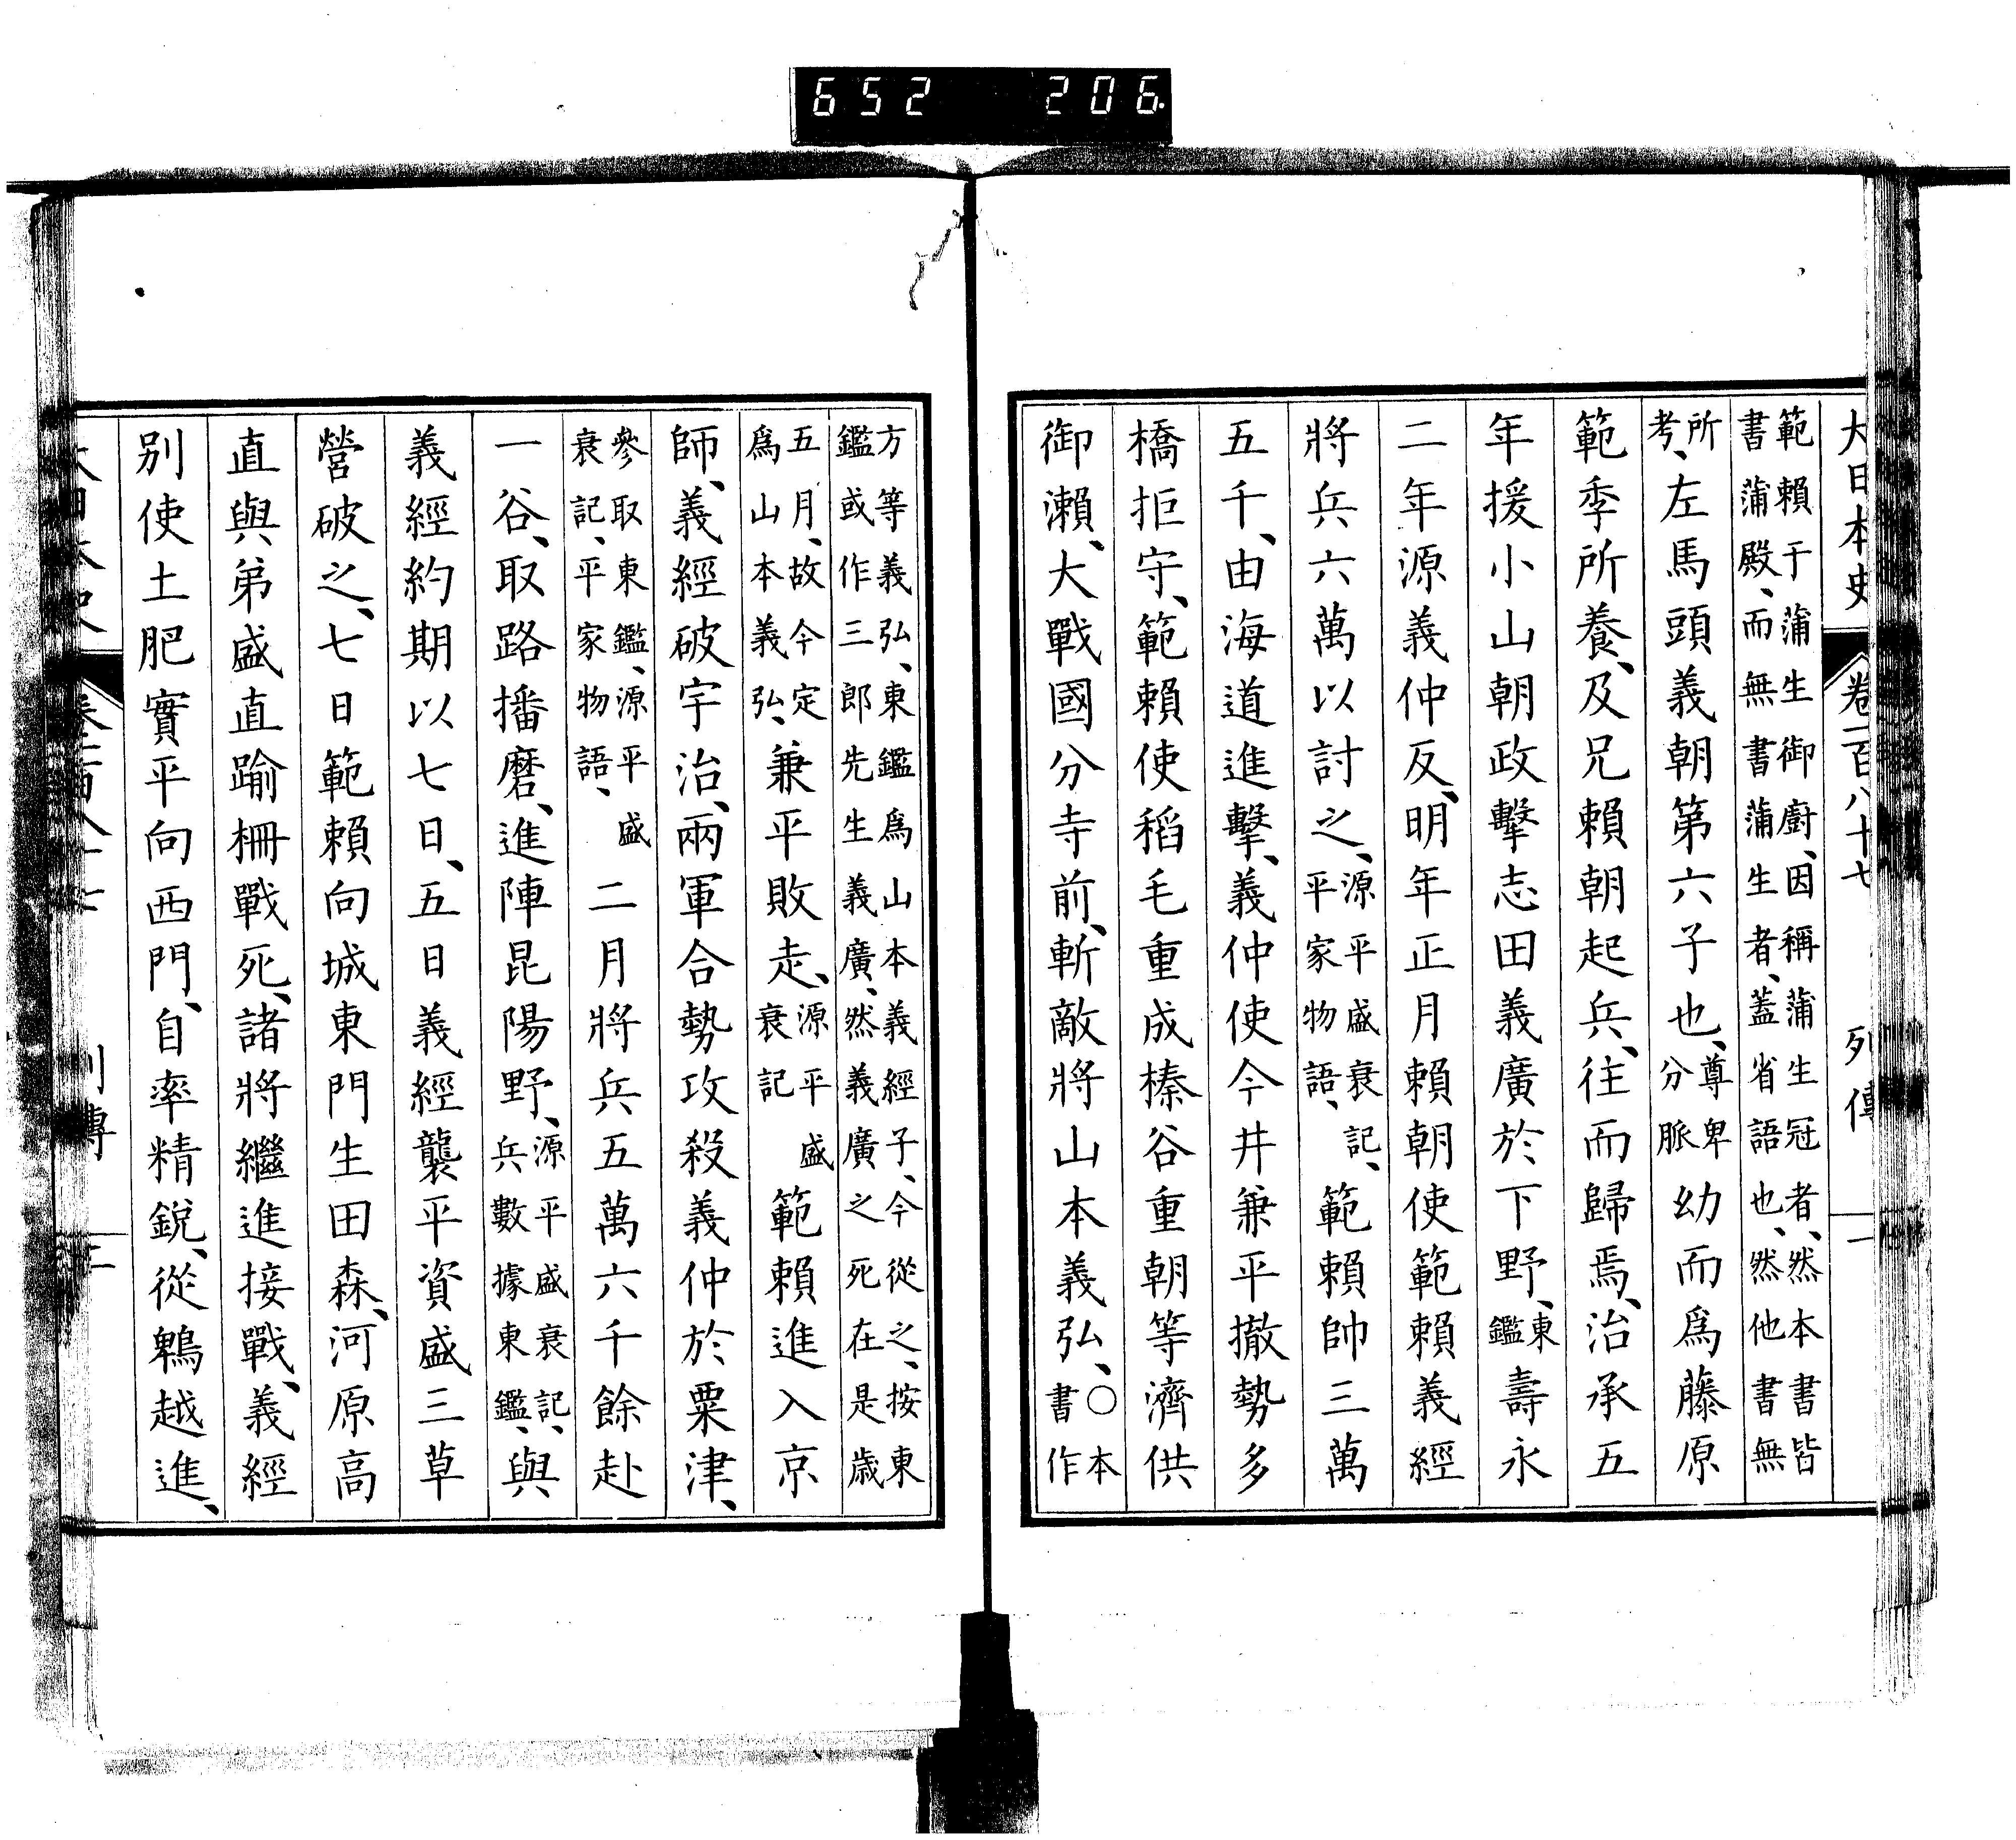 652 206
大日本史 卷一百八十七 列傳 一
範賴于蒲生御廚、因稱蒲生冠者、然本書皆
書蒲殿、而無書蒲生者、蓋省語也、然他書無
所
考、左馬頭義朝第六子也、尊卑
分脈幼而爲藤原
範季所養、及兄賴朝起兵、往而歸焉、治承五
年援小山朝政擊志田義廣於下野、東
鑑壽永
二年源義仲反、明年正月賴朝使範賴義經
將兵六萬以討之、源平盛衰記、
平家物語、範賴帥三萬
五千、由海道進擊、義仲使今井兼平撤勢多
橋拒守、範賴使稻毛重成榛谷重朝等濟供
御瀨、大戰國分寺前、斬敵將山本義弘、○本
書作
方等義弘、東鑑爲山本義經子、今從之、按東
鑑或作三郎先生義廣、然義廣之死在是歲
五月、故今定
爲山本義弘、兼平敗走、源平盛
衰記範賴進入京
師、義經破宇治、兩軍合勢攻殺義仲於粟津、
參取東鑑、源平盛
衰記、平家物語、二月將兵五萬六千餘赴
一谷、取路播磨、進陣昆陽野、源平盛衰記、
兵數據東鑑、與
義經約期以七日、五日義經襲平資盛三草
營破之、七日範賴向城東門生田森、河原高
直與弟盛直踰柵戰死、諸將繼進接戰、義經
別使土肥實平向西門、自率精銳、從鵯越進、